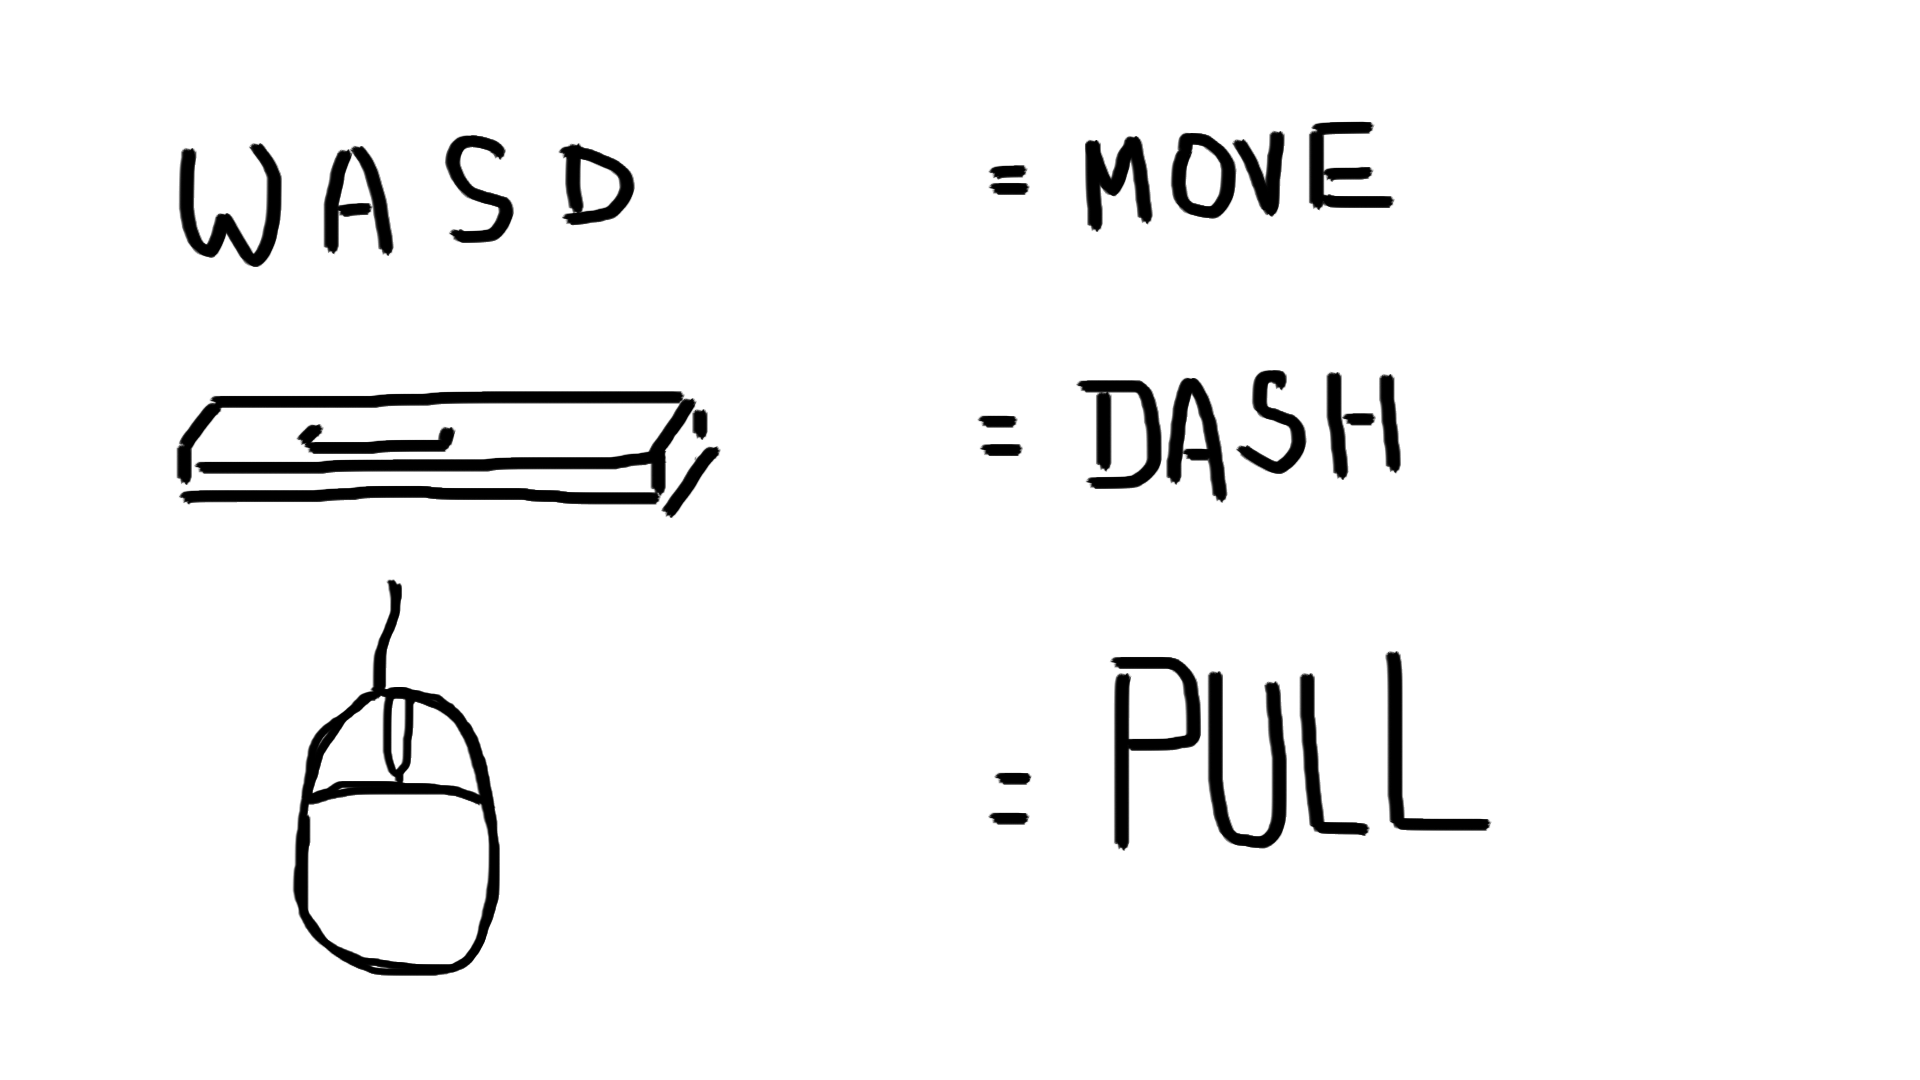 WASD = MOVE
= DASH
= PULL